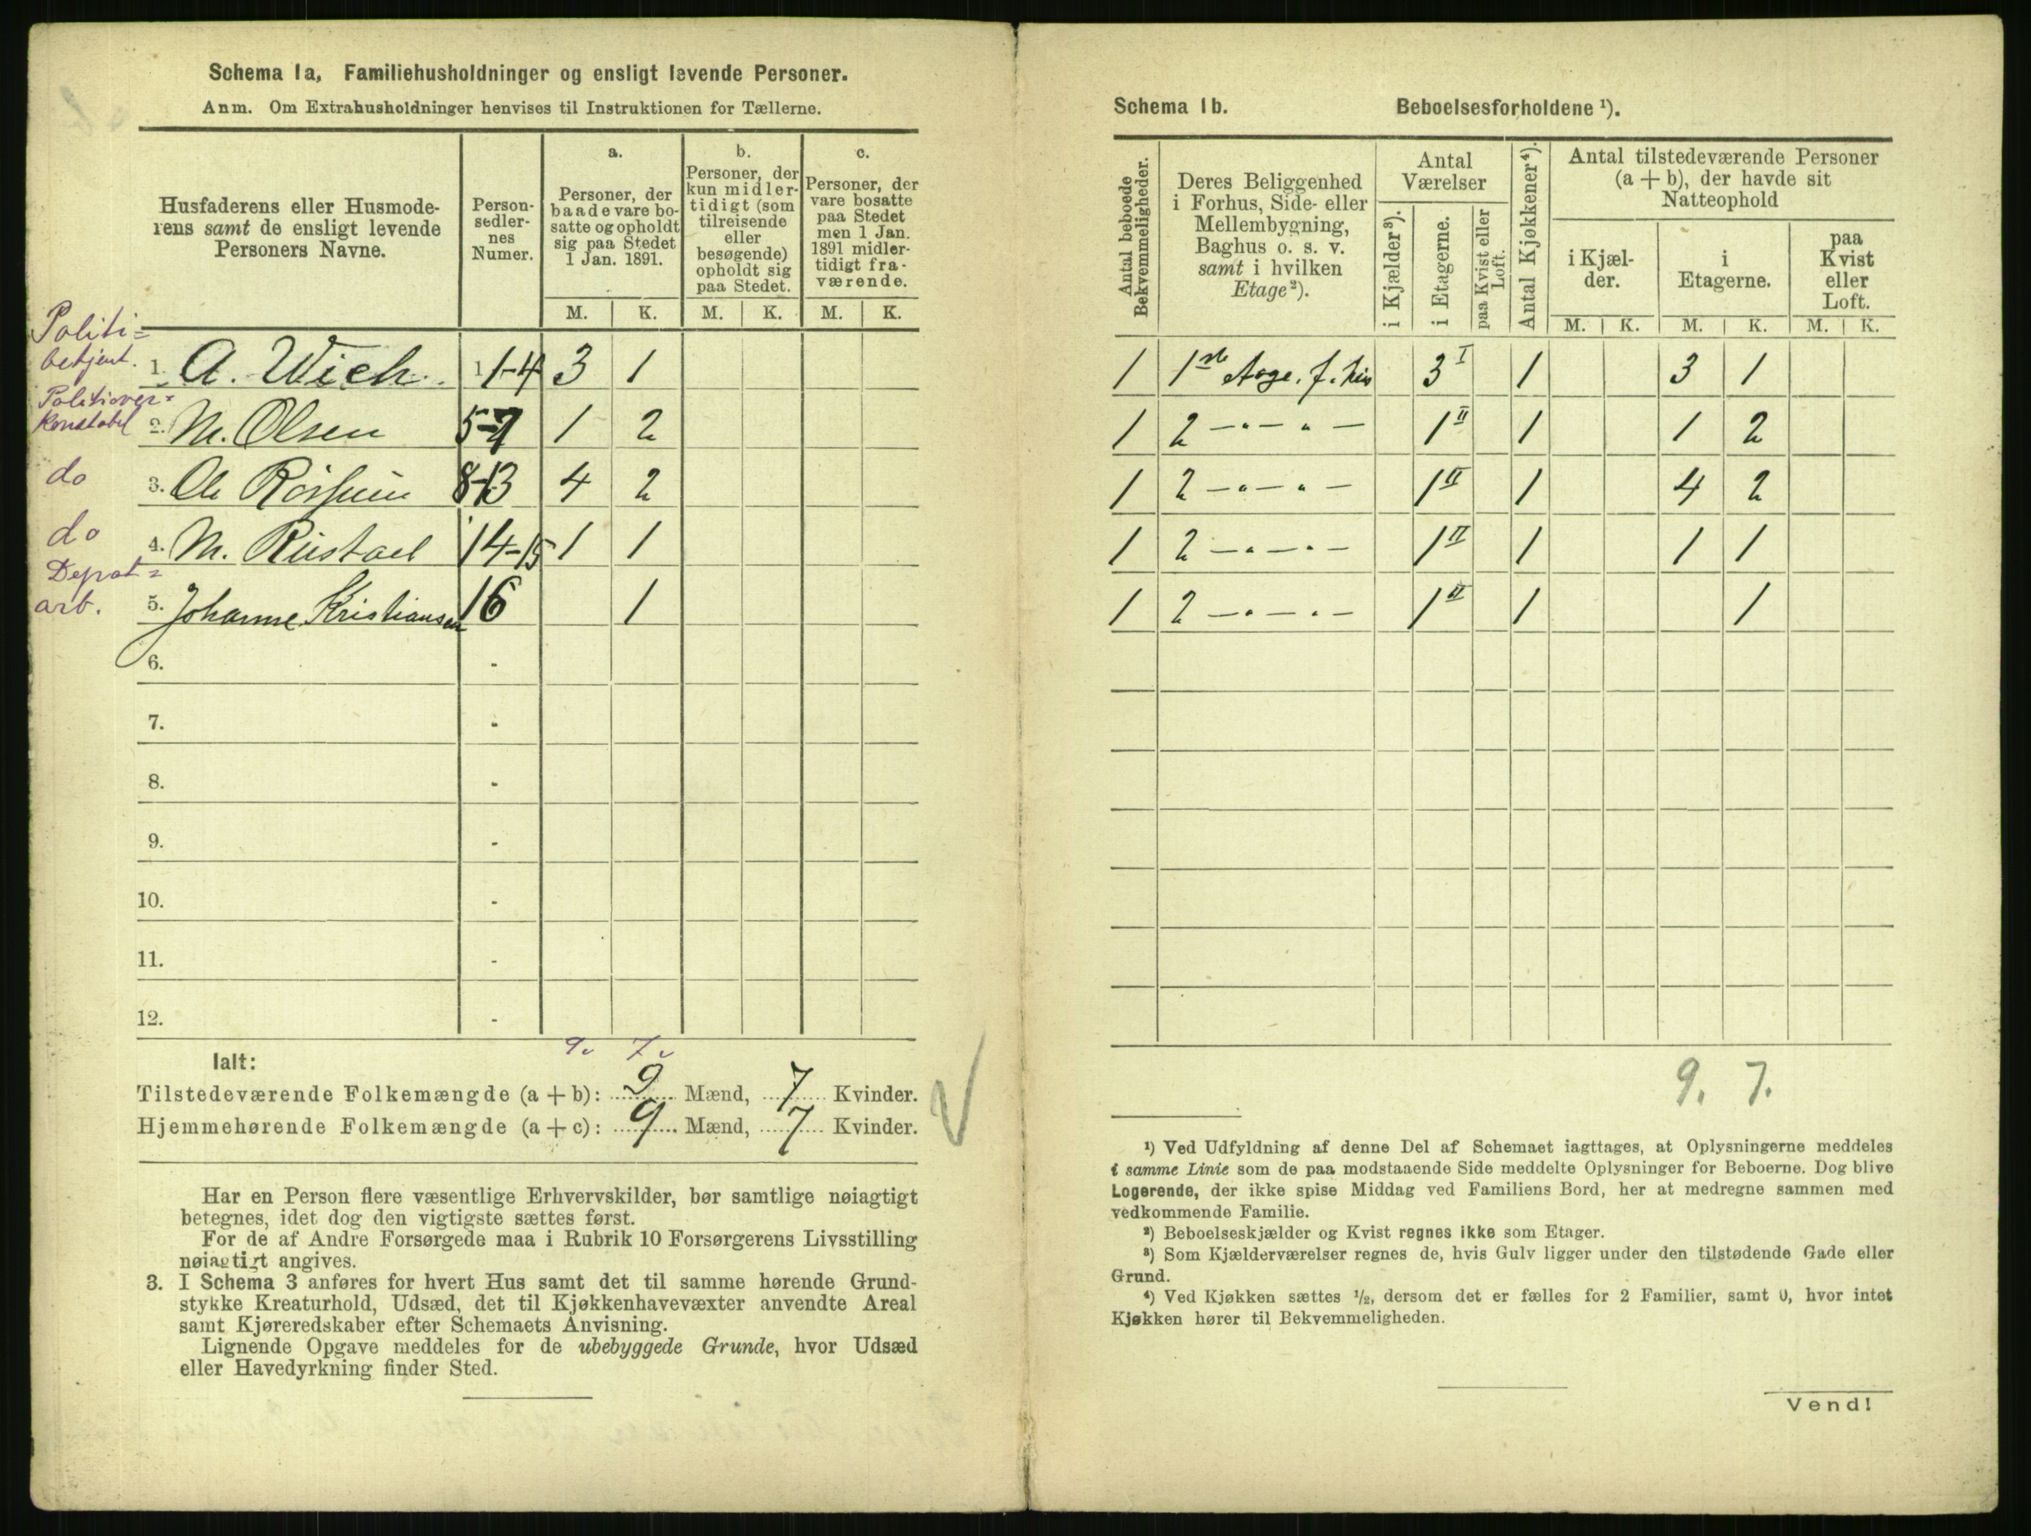 Schema 1a, Familiehusholdninger og ensligt levende Personer.
Anm. Om Extrahusholdninger henvises til Instruktionen for Tællerne.
Husfaderens eller Husmode-
rens samt de ensligt levende
Personers Navne.
Person-
sedler-
nes
Numer.
a.
Personer, der
baade vare bo-
satte og opholdt
sig paa Stedet
1 Jan. 1891.
b.
Personer, der
kun midler-
tidigt (som
tilreisende
eller
besøgende)
opholdt sig
paa Stedet.
c.
Personer, der
vare bosatte
paa Stedet
men 1 Jan.
1891 midler-
tidigt fra-
værende.
M. K. M. K. M. K.
Politi=
betjent.
1. A. Wich. 1 1-4 3 1
Politiover=
konstabel
2. M. Olsen 5-7 1 2
do
3. Ole 8-13 4 2
do
4. M. Rustael 14-15 1 1
Depot=
arb.
5. Johanne Kristiansen 16 1
6. -
7. -
8. -
9. -
10. -
11. -
12. -
9. 7.
Ialt:
Tilstedeværende Folkemængde (a + b): 9 Mænd, 7 Kvinder.
Hjemmehørende Folkemængde (a + c): 9 Mænd, 7 Kvinder.
Har en Person flere væsentlige Erhvervskilder, bør samtlige nøiagtigt
betegnes, idet dog den vigtigste sættes først.
For de af Andre Forsørgede maa i Rubrik 10 Forsørgerens Livsstilling
nøiagtigt angives.
3. I Schema 3 anføres for hvert Hus samt det til samme hørende Grund-
stykke Kreaturhold, Udsæd, det til Kjøkkenhavevæxter anvendte Areal
samt Kjøreredskaber efter Schemaets Anvisning.
Lignende Opgave meddeles for de ubebyggede Grunde, hvor Udsæd
eller Havedyrkning finder Sted.
Schema 1b. Beboelsesforholdene ¹).
Antal beboede
Bekvemmeligheder.
Deres Beliggenhed
i Forhus, Side- eller
Mellembygning,
Baghus o. s. v.
samt i hvilken
Etage²).
Antal
Værelser
i Kjælder³).
i Etagerne.
paa Kvist eller
Loft.
Antal Kjøkkener⁴).
Antal tilstedeværende Personer
(a + b), der havde sit
Natteophold
i Kjæl-
der.
i
Etagerne.
paa
Kvist
eller
Loft.
M. K. M. K. M. K.
1 1ste 3 I 1 3 1
1 2 — „ — „ — 1 II 1 1 2
1 2 — „ — „ — 1 II 1 4 2
1 2 — „ — „ — 1 II 1 1 1
1 2 — „ — „ — 1 II 1 1
9. 7.
¹) Ved Udfyldning af denne Del af Schemaet iagttages, at Oplysningerne meddeles
i samme Linie som de paa modstaaende Side meddelte Oplysninger for Beboerne. Dog blive
Logerende, der ikke spise Middag ved Familiens Bord, her at medregne sammen med
vedkommende Familie.
²) Beboelseskjælder og Kvist regnes ikke som Etager.
³) Som Kjælderværelser regnes de, hvis Gulv ligger under den tilstødende Gade eller
Grund.
⁴) Ved Kjøkken sættes ½, dersom det er fælles for 2 Familier, samt 0, hvor intet
Kjøkken hører til Bekvemmeligheden.
Vend!